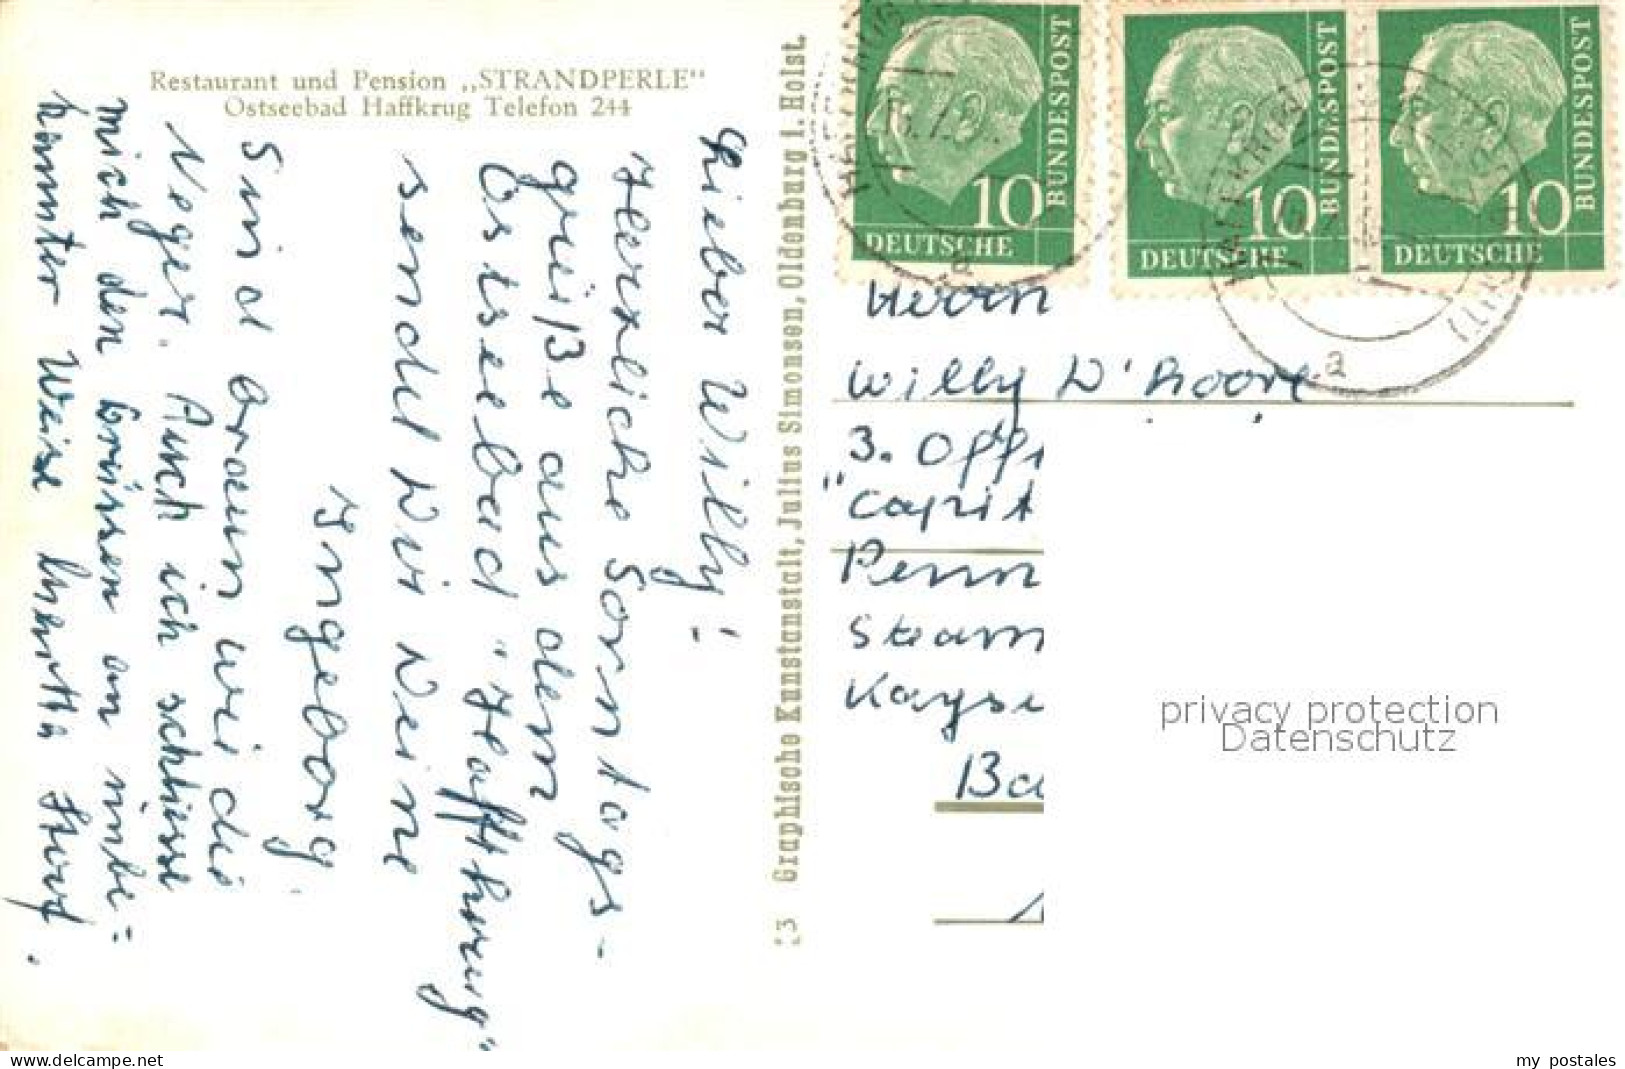 Restaurant und Pension „STRANDPERLE"
Ostseebad Haffkrug Telefon 244
Lieber Willy!
Herzliche Sonntags-
grüße aus dem
Ostseebad "Haffkrug"
sendet Dir Deine
Ingeborg.
Sind braun wie die
Neger. Auch ich schliesse
mich den Grüssen an unbe=
kannter Weise
13 Graphische Kunstanstalt, Julius Simonsen, Oldenburg i. Holst.
10
DEUTSCHE
BUNDESPOST
10
DEUTSCHE
BUNDESPOST
10
DEUTSCHE
BUNDESPOST
HAFFKRUG
a
Herrn
Willy D'hoore
3. Offi
"Capit
Penn
Steam
Kayse
privacy protection
Datenschutz
my postales
www.delcampe.net